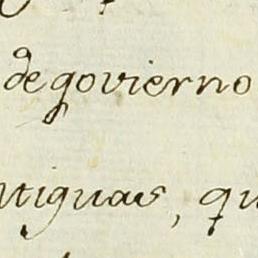 de govierno
ntiguas, qu